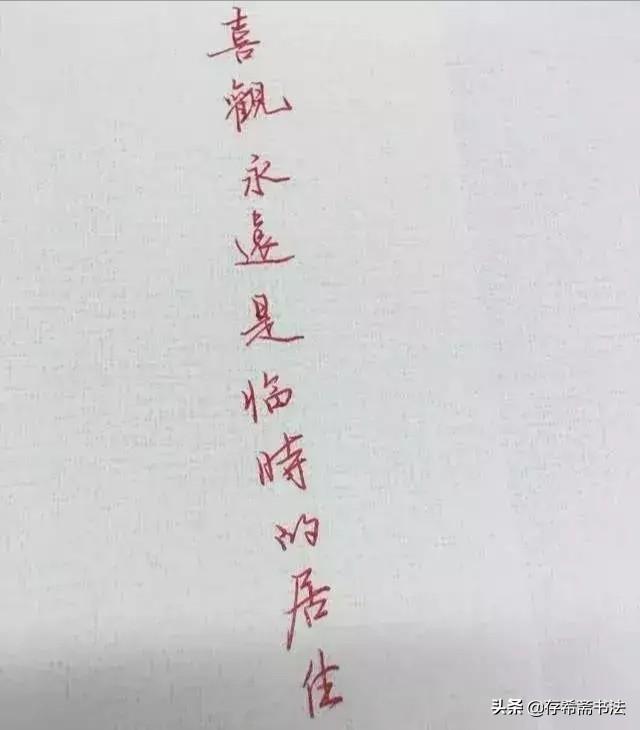 喜觀永遠是临時的居住
头条 @存希斋书法